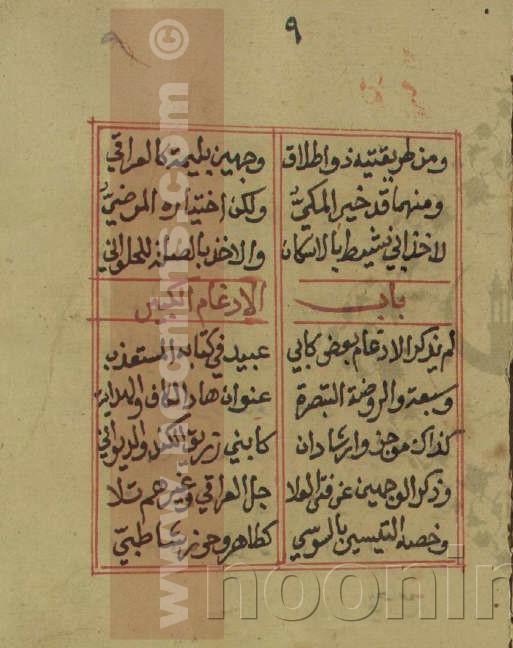 ٩
ومن طريقتيه ذو اطلاق وجهين بليمة كالعراقي
ومنهما قد خير المكيّ ولكن اختياره المرضيّ
لاخذ ابي نشيط بالاسكان والاخذ بالصلة للحلواني
باب الادغام الكبير
لم يذكر الادغام بعض كابي عبيد في كتابه المستعذب
وسبعة والروضة التبصرة عنوان هاد الكاف والهداية
كذاك موجز وارشادان كابني زريق الكنز والديواني
وذكر الوجهين عن فتى العلا جل العراقي وغيرهم تلا
وخصه التيسير بالسوسي كطاهر وحرز شاطبيّ
www.
.com ©
noonin